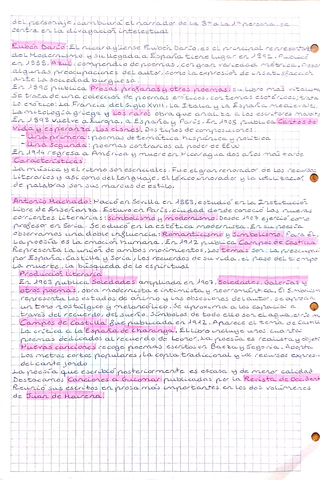 del personaje, cambiará el narrador de la 3ª a la 1ª persona, se
centra en la divagación intelectual
Rubén Darío: El nicaragüense Rubén Darío, es el principal representante
del Modernismo y su llegada a España tiene lugar en 1892. Publicó
en 1888, Azul, compendio de poemas, con gran variedad métrica. Posee
algunas preocupaciones del autor, como la expresión de insatisfacción
ante la sociedad burguesa.
En 1896 publica Prosas profanas y otros poemas: su libro más
Se trata de una colección de poemas eróticos, con temas exóticos, entre
lo erótico: La Francia del siglo XVIII, la Italia y la España medievales,
la mitología griega y Los raros, obra que analiza a los escritores
En 1898 vuelve a Europa, a España y París. En 1905 publica Cantos de
vida y esperanza, los cisnes. Dos tipos de composiciones:
- Una primera: poemas de temática hispánica y política
- Una segunda: poemas contrarios al poder de EEUU
En 1914 regresa a América y muere en Nicaragua dos años más tarde.
Características:
La música y el ritmo son esenciales. Fue el gran renovador de los recursos
literarios y así como del lenguaje, el léxico innovador y la utilización
de palabras son sus marcas de estilo.
Antonio Machado: Nació en Sevilla en 1875, estudió en la Institución
Libre de Enseñanza. Estuvo en París, ciudad donde conoció las nuevas
corrientes literarias: simbolismo y modernismo. Desde 1907 ejerció como
profesor en Soria. Se educó en la estética modernista. En su poesía
observamos una doble influencia: Romanticismo y Simbolismo. Para él
la poesía es la emoción humana. En 1912, publica Campos de Castilla.
Representa la unión de ambos movimientos. Los temas son la preocupación
por España, Castilla y Soria, los recuerdos de su vida, el paso del tiempo
la muerte, la búsqueda de lo espiritual
Producción literaria
En 1903 publica Soledades ampliada en 1907, Soledades, Galerías y
otros poemas, obra modernista e intimista y neorromántica. El
representa los estados de ánimo y las obsesiones del autor, se
un tono nostálgico y melancólico. Se aproxima a los espacios a
través del recuerdo, del sueño. Símbolos de todo ello son el agua,
Campos de Castilla fue publicada en 1912. Aparece el tema de Castilla
La crítica a la España de charanga. El libro incluye unos cuantos
poemas dedicados al recuerdo de Leonor. La poesía es realista y
Nuevas canciones recoge poemas escritos en Baeza y Segovia. Adopta
los metros cortos populares, la copla tradicional y los recursos expresivos
del cante jondo
La poesía que escribió posteriormente es escasa y de menor calidad
Destacamos Canciones a Guiomar publicadas por la Revista de Occidente
Reunió sus escritos en prosa más importantes en los dos volúmenes
de Juan de Mairena.